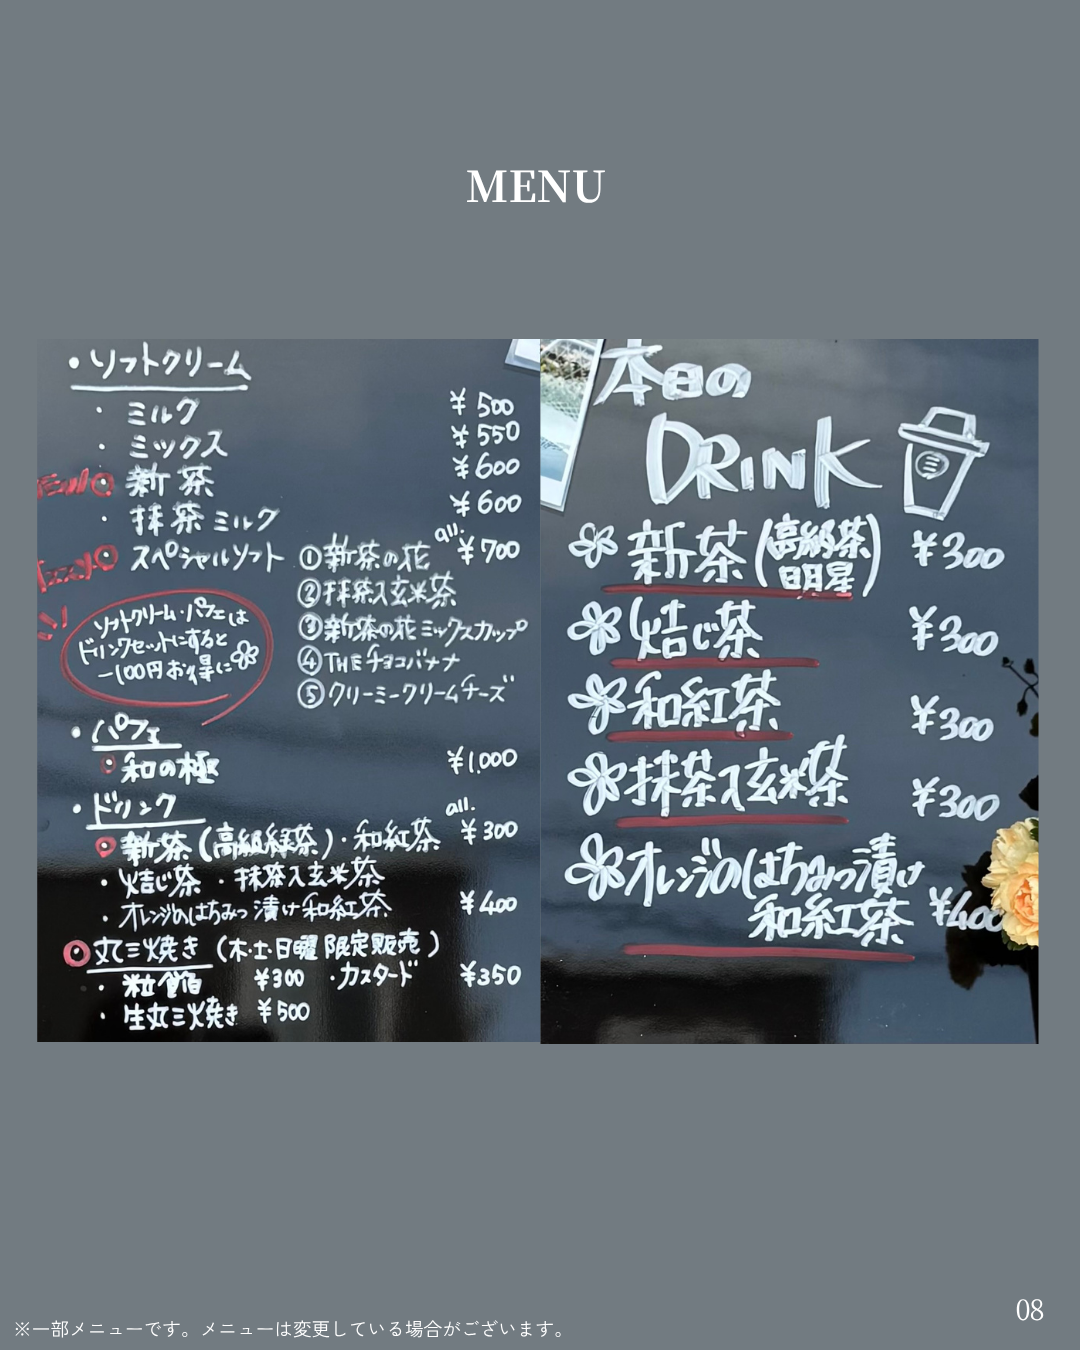 MENU
・ソフトクリーム
・ミルク ¥500
・ミックス ¥550
新茶 ¥600
・抹茶ミルク ¥600
スペシャルソフト ①新茶の花 all. ¥700
②抹茶入玄米茶
③新茶の花ミックスカップ
④THEチョコバナナ
⑤クリーミークリームチーズ
ソフトクリーム・パフェは
ドリンクセットにすると
-100円お得に
・パフェ
和の極 ¥1.000
・ドリンク all.
新茶(高級緑茶)・和紅茶 ¥300
・焙じ茶・抹茶入玄米茶
・オレンジのはちみつ漬け和紅茶 ¥400
丸三焼き(木・土・日曜限定販売)
・粒餡 ¥300 ・カスタード ¥350
・生丸三焼き ¥500
本日の
DRINK
三
新茶(高級茶 明星) ¥300
焙じ茶 ¥300
和紅茶 ¥300
抹茶入玄米茶 ¥300
オレンジのはちみつ漬け
和紅茶 ¥400
08
※一部メニューです。メニューは変更している場合がございます。